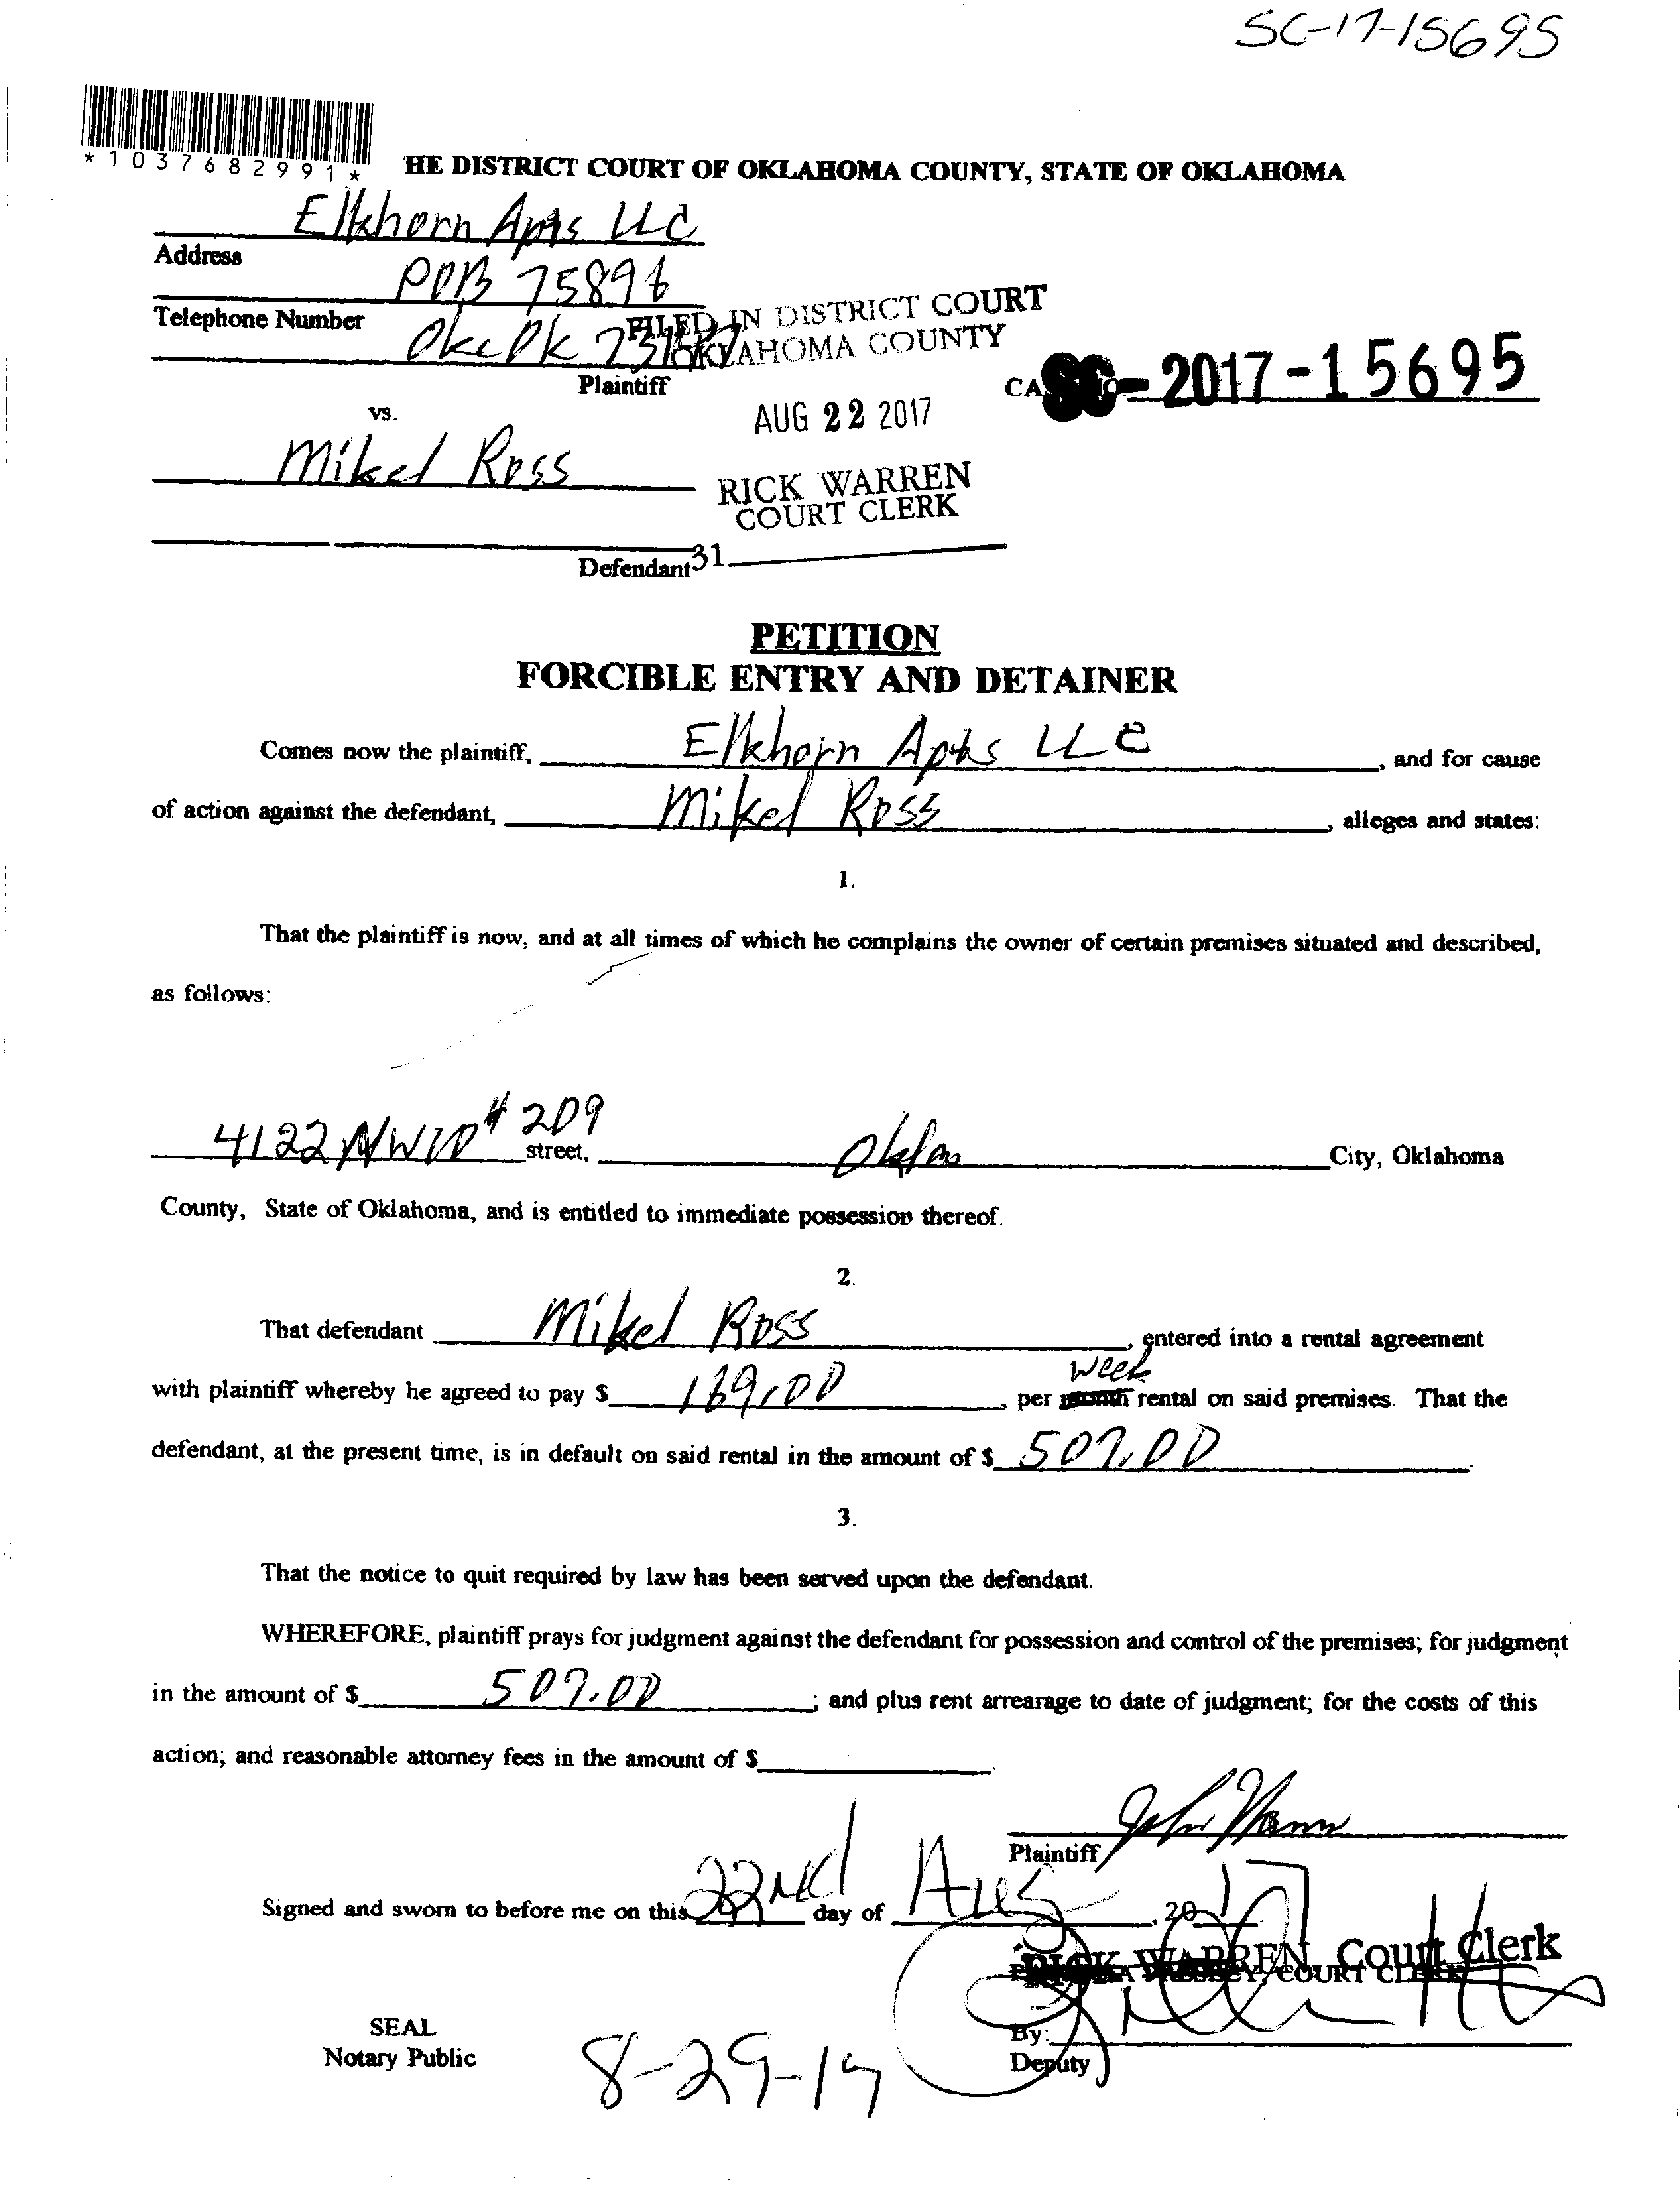 SC-17-15695
*1037682991*
HE DISTRICT COURT OF OKLAHOMA COUNTY, STATE OF OKLAHOMA
Elkhorn Apts LLC
Address
POB 75896
Telephone Number
FILED IN DISTRICT COURT
OKLAHOMA COUNTY
Okc Ok
Plaintiff
SC-2017-15695
vs.
AUG 22 2017
Mikel Ross
RICK WARREN
COURT CLERK
Defendant
31
PETITION
FORCIBLE ENTRY AND DETAINER
Comes now the plaintiff, Elkhorn Apts LLC, and for cause
of action against the defendant, Mikel Ross, alleges and states:
1.
That the plaintiff is now, and at all times of which he complains the owner of certain premises situated and described,
as follows:
4122 NW10 #209 street, City, Oklahoma
County, State of Oklahoma, and is entitled to immediate possession thereof.
2.
That defendant Mikel Ross, entered into a rental agreement
with plaintiff whereby he agreed to pay $ 169.00 per month week rental on said premises. That the
defendant, at the present time, is in default on said rental in the amount of $ 507.00
3.
That the notice to quit required by law has been served upon the defendant.
WHEREFORE, plaintiff prays for judgment against the defendant for possession and control of the premises; for judgment
in the amount of $ 507.00; and plus rent arrearage to date of judgment; for the costs of this
action; and reasonable attorney fees in the amount of $
Plaintiff
Signed and sworn to before me on this 22nd day of Aug, 2017
RICK WARREN, Court Clerk
COURT CLERK
By:
Deputy
SEAL
Notary Public
8-29-19